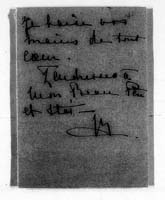 Je baise vos
mains de tout
cœur.
Tendresse à
mon Beau
et